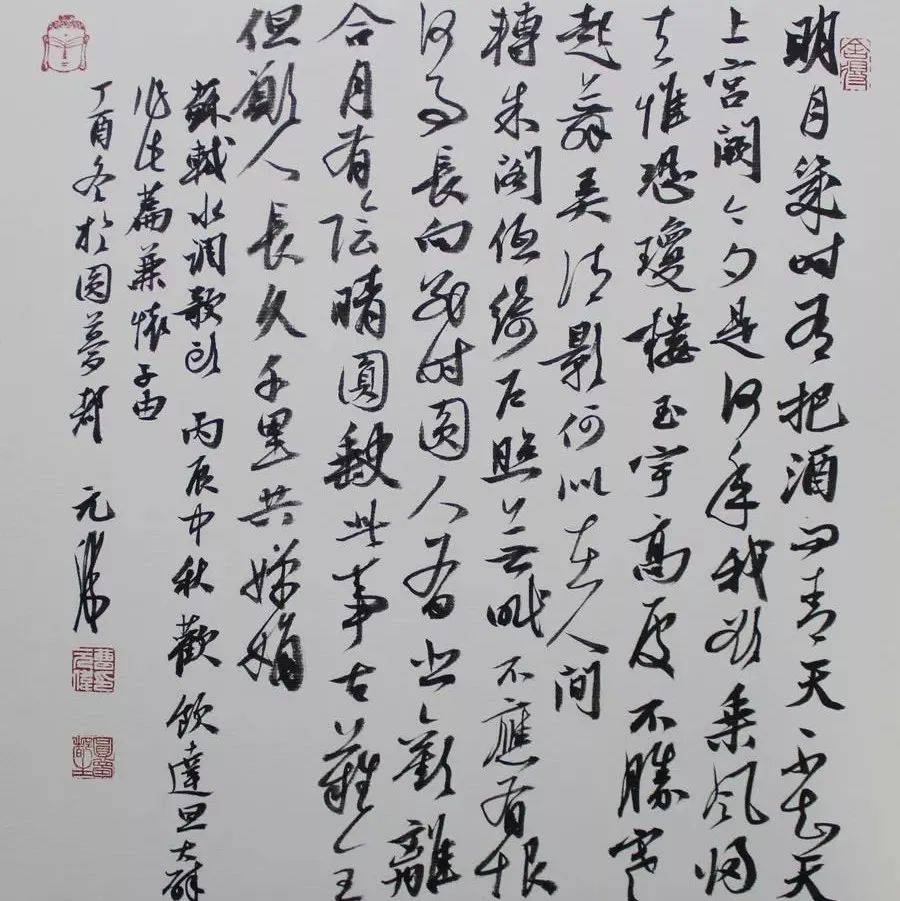 明月幾时有把酒问青天不知天
上宮闕今夕是何年我欲乘风归
去惟恐瓊樓玉宇高處不勝寒
起舞弄清影何似在人間
轉朱閣低綺户照無眠不應有恨
何事長向别时圆人有悲歡離
合月有陰晴圓缺此事古難全
但願人長久千里共嬋娟
蘇軾水調歌頭 丙辰中秋歡飲達旦大醉
作此篇兼懷子由
丁酉冬於圆夢都 元